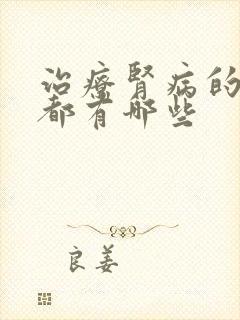 治療腎病的
都有哪些
良姜